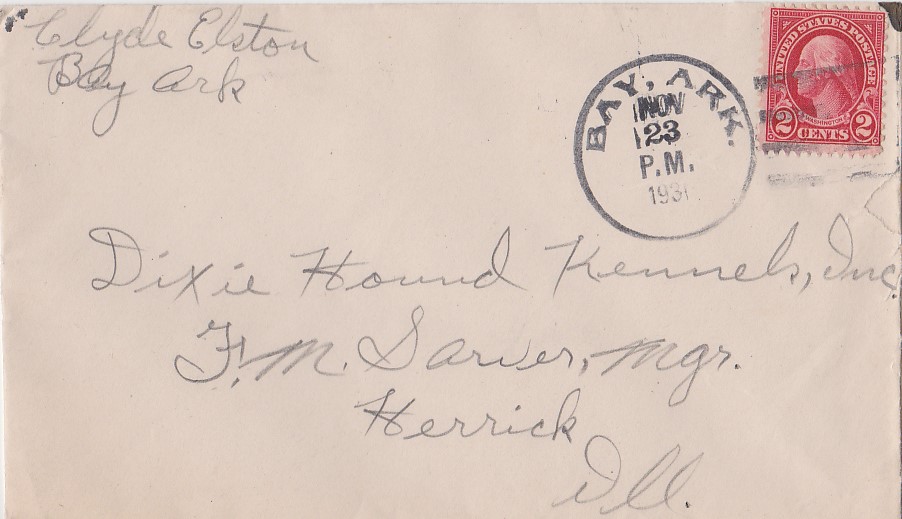 Clyde Elston
Bay Ark
BAY, ARK.
NOV
23
P.M.
UNITED STATES POSTAGE
WASHINGTON
2 CENTS 2
Dixie Hound Kennels, Inc
F. M. Sarver, Mgr.
Herrick
Ill.